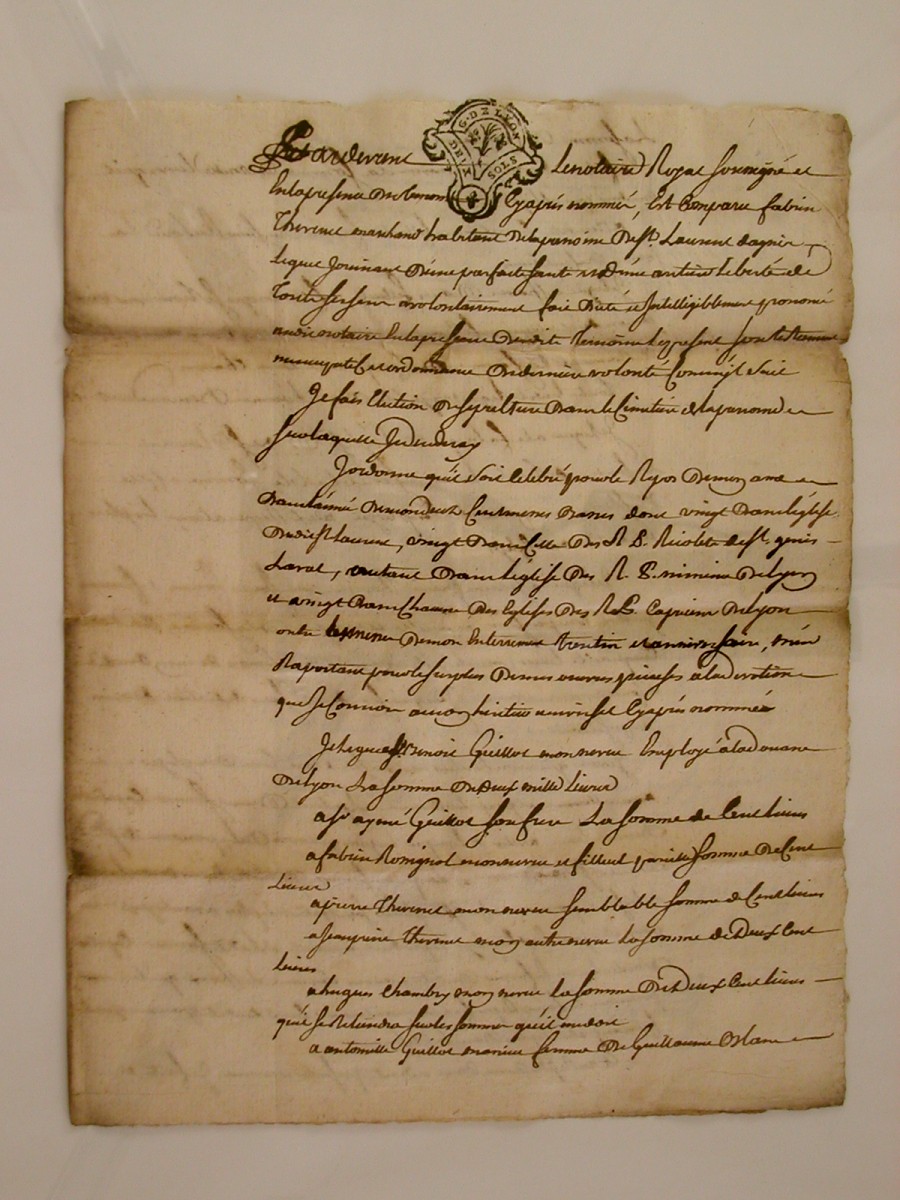 GEN. DE LYON
SOLS
Pardevant Le notaire Royal soussigné et
En la presence des temoins Cy après nommés, Est Comparu fabien
Thevenet marchand habitant de la paroisse de St. Laurent dagnir
lequel Jouissant d'une parfaite santé et d'une entiere liberté de
Tous ses sens a volontairement fait dicté et Intelligiblement prononcé
audit notaire En la presence desdits Temoins Le present son testament
nuncupatif et ordonnance de derniere volonté Comm'il suit
Je fais Election de sepulture dans le Cimetiere de la paroisse
sur laquelle Je decederay
J'ordonne qu'il soit celebré pour le Repos de mon ame
dans l'année de mon deces Cent messes basses dont vingt dans l'église
dudit St Laurent, vingt dans Celle des R. P. Picolets de St. genis
Laval, autant dans l'église des R. P. minimes de Lyon
et vingt dans Chacune des Eglises des R. P. Capucins de Lyon
outre les messes de mon Enterrement trentin et anniversaire, m'en
Raportant pour le surplus de mes œuvres pieuses a la devotion
que Je Connois a mon heritier universel Cy après nommée
Je legue a Sr Benoit Guillot mon neveu Employé à la douane
de Lyon La somme de deux mille Livres
a Sr aymé Guillot son frere La somme de Cent livres
a fabien Romignot mon neveu et filleul pareille somme de Cent
livres
a pierre Thevenet mon neveu semblable somme de Cent livres
a Jean pierre Thevenet mon autre neveu la somme de Deux Cent
livres
a hugues Chambry mon neveu la somme de Deux Cent livres
qu'il se Retiendra sur les sommes qu'il me doit
a antoinette Guillot ma niece femme de Guillaume